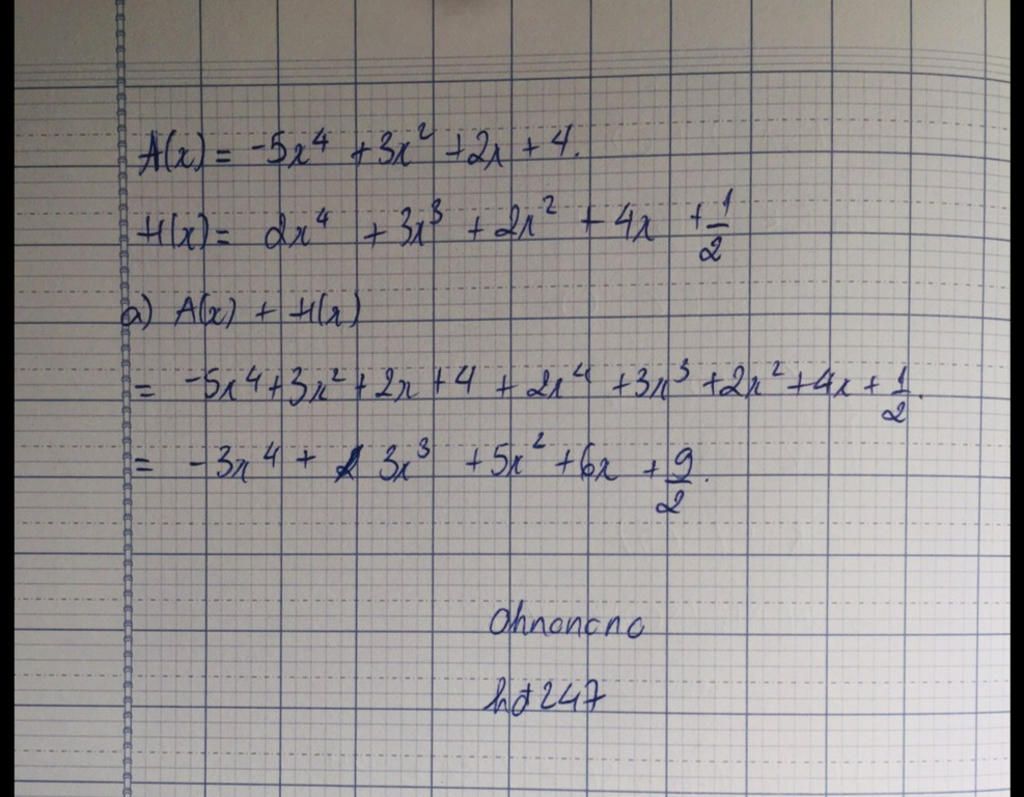 A(x) = -5x⁴ + 3x² + 2x + 4.
H(x) = 2x⁴ + 3x³ + 2x² + 4x + 1/2
a) A(x) + H(x)
= -5x⁴ + 3x² + 2x + 4 + 2x⁴ + 3x³ + 2x² + 4x + 1/2.
= -3x⁴ + 3x³ + 5x² + 6x + 9/2.
Ohnonono
hđ247